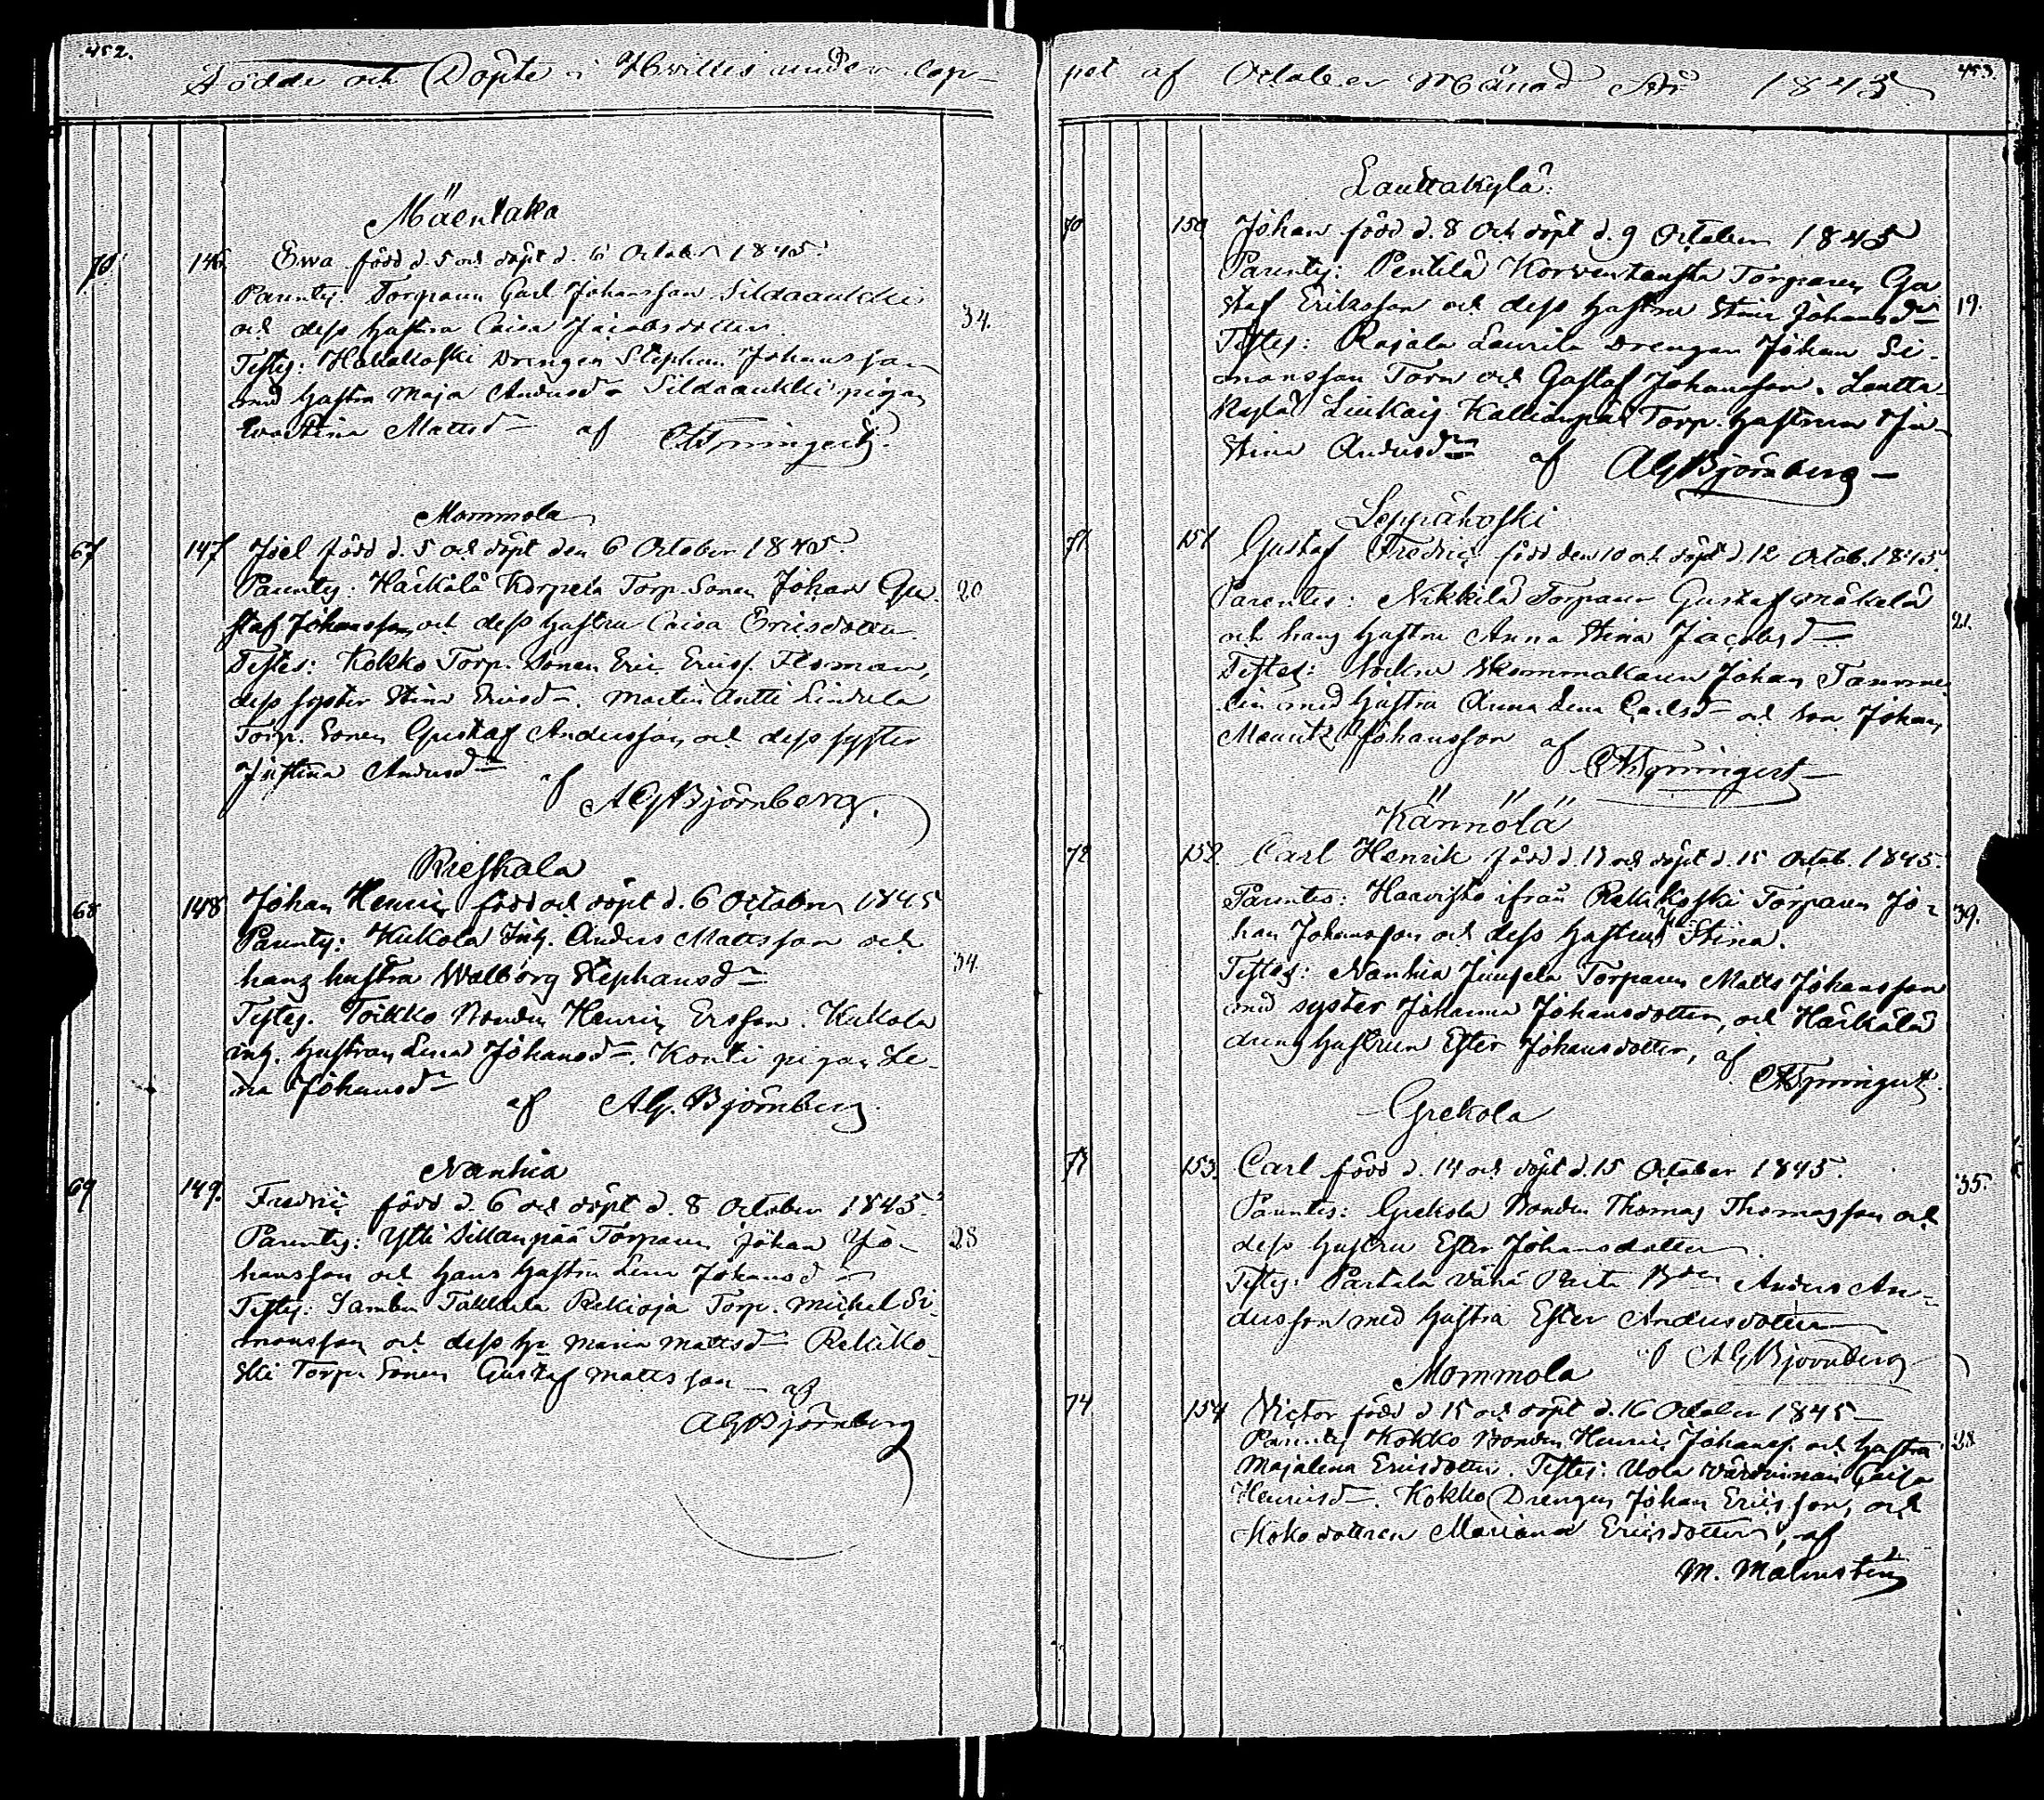 452.
Födde och Döpte i Hvittis under lop-
Mäentaka
70 146. Ewa född d. 5 och döpt d. 6 October 1845.
Parentes: Torparen Carl Johansson Sildaaukki
och dess hustru Caisa Jacobsdotter. 34.
Testes: Drengen Stephan Johansson
med hustru Maja Andersdr Sildaaukki pigan
Mattsdr af
Mommola
67 147 Joel född d. 5 och döpt den 6 October 1845.
Parentes: Härkälä Korpela Torp. Sonen Johan Gu- 20
staf Johansson och dess hustru Caisa Ericsdotter.
Testes: Kokko Torp. Sonen Eric Ericss. Floman,
dess syster Stina Ericsdr. Martin Antti Lindula
Torp. Sonen Gustaf Andersson, och dess syster
Justina Andersdr af
AG Björnberg.
Rieskala
68 148 Johan Henric född och döpt d. 6 October 1845
Parentes: Kukola Inh. Anders Mattsson och
hans hustru Walborg Stephansdr 34.
Testes. Töikko Bonden Henric Ersson. Kukola
inh. hustran Lena Johansdr. Konti pigan Le-
na Johansdr
af AG. Björnberg.
Nanhia
69 149. Fredric född d. 6 och döpt d. 8 October 1845.
Parentes: Ytti Sillanpää Torparen Johan Jo- 28
hansson och hans hustru Lena Johansd
Testes: Sambu Takkula Rekioja Torp. Michel Si-
monsson och dess hu Maria Mattsdr Rekiko-
ski Torp. Sonen Gustaf Mattsson af
AG Björnberg
453.
pet af October Månad År 1845
Lauttakylä.
70 150 Johan född d. 8 och döpt d. 9 October 1845
Parentes: Pentilä Korventausta Torparen Gu
staf Eriksson och dess hustru Stina Johansdr 19.
Testes: Rajala Laurila Drengen Johan Si-
monsson Torn och Gustaf Johansson. Lautta-
kylä Kallionpää Torp. hustrun Ju-
stina Andersdr af AG Björnberg
Leppäkoski
71 151 Gustaf Fredric född den 10 och döpt d. 12 Octob. 1845.
Parentes: Nikkilä Torparen Gustaf Mäkelä 21.
och hans hustru Anna Stina Jacobsdr
Testes: Sockne Skommakaren Johan Tamme-
lin med hustru Anna Lena Carlsdr och son Johan
Mauritz Johansson af
Kännölä
72 152. Carl Henrik född d. 13 och döpt d. 15 Octob. 1845.
Parentes: Haavisto ifrån Rekikoski Torparen Jo- 39.
han Johansson och dess hustru Stina.
Testes: Nanhia Junsela Torparen Matts Johansson
med syster Johanna Johansdotter, och Härkälä
dreng hustrun Ester Johansdotter, af
Grekola
73 153. Carl född d. 14 och döpt d. 15 October 1845. 35.
Parentes: Grekola Bonden Thomas Thomasson och
dess hustru Ester Johansdotter.
Testes: Partala Vähä Parta Bden Anders An-
dersson med hustru Ester Andersdotter
af AG Björnberg
Mommola
74 154 Victor född d 15 och döpt d. 16 October 1845
Parentes Kokko Bonden Henric Johanss. och hustru 28
Majalena Ericsdotter. Testes: Uola Caisa
Henricsdr. Kokko Drengen Johan Ericsson, och
Koko dottren Mariana Ericsdotter, af
M. Malmsten